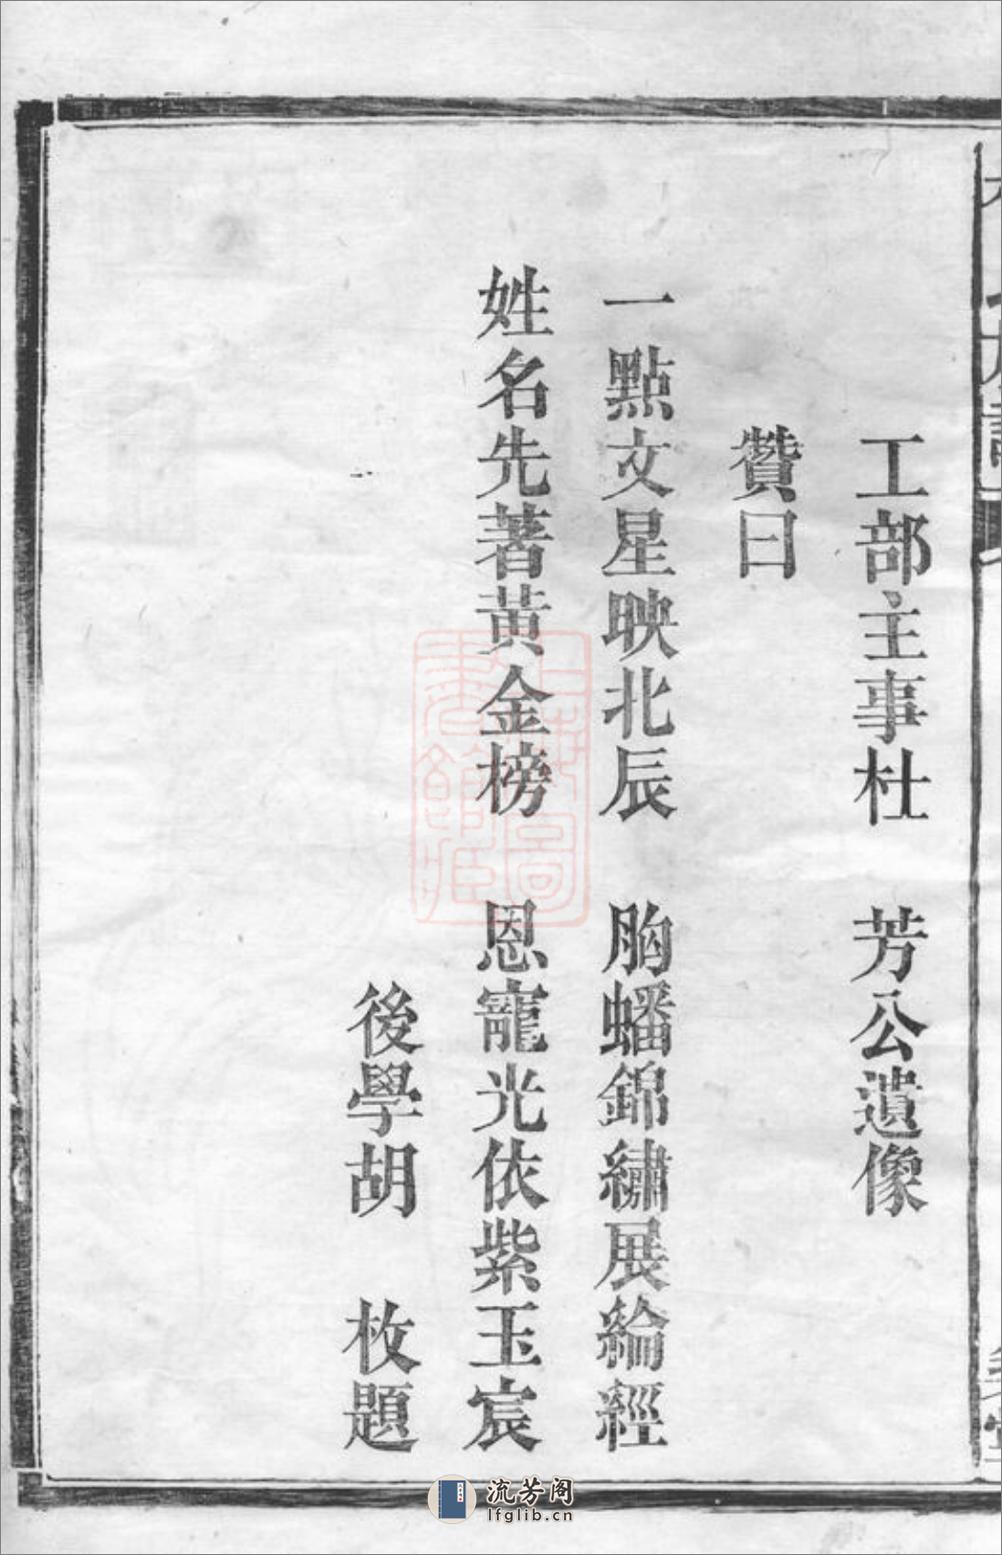 工部主事杜　芳公遺像
贊曰
一點文星映北辰　胸蟠錦繡展綸經
姓名先著黃金榜　恩寵光依紫玉宸
後學胡　枚題
流芳阁
lfglib.cn